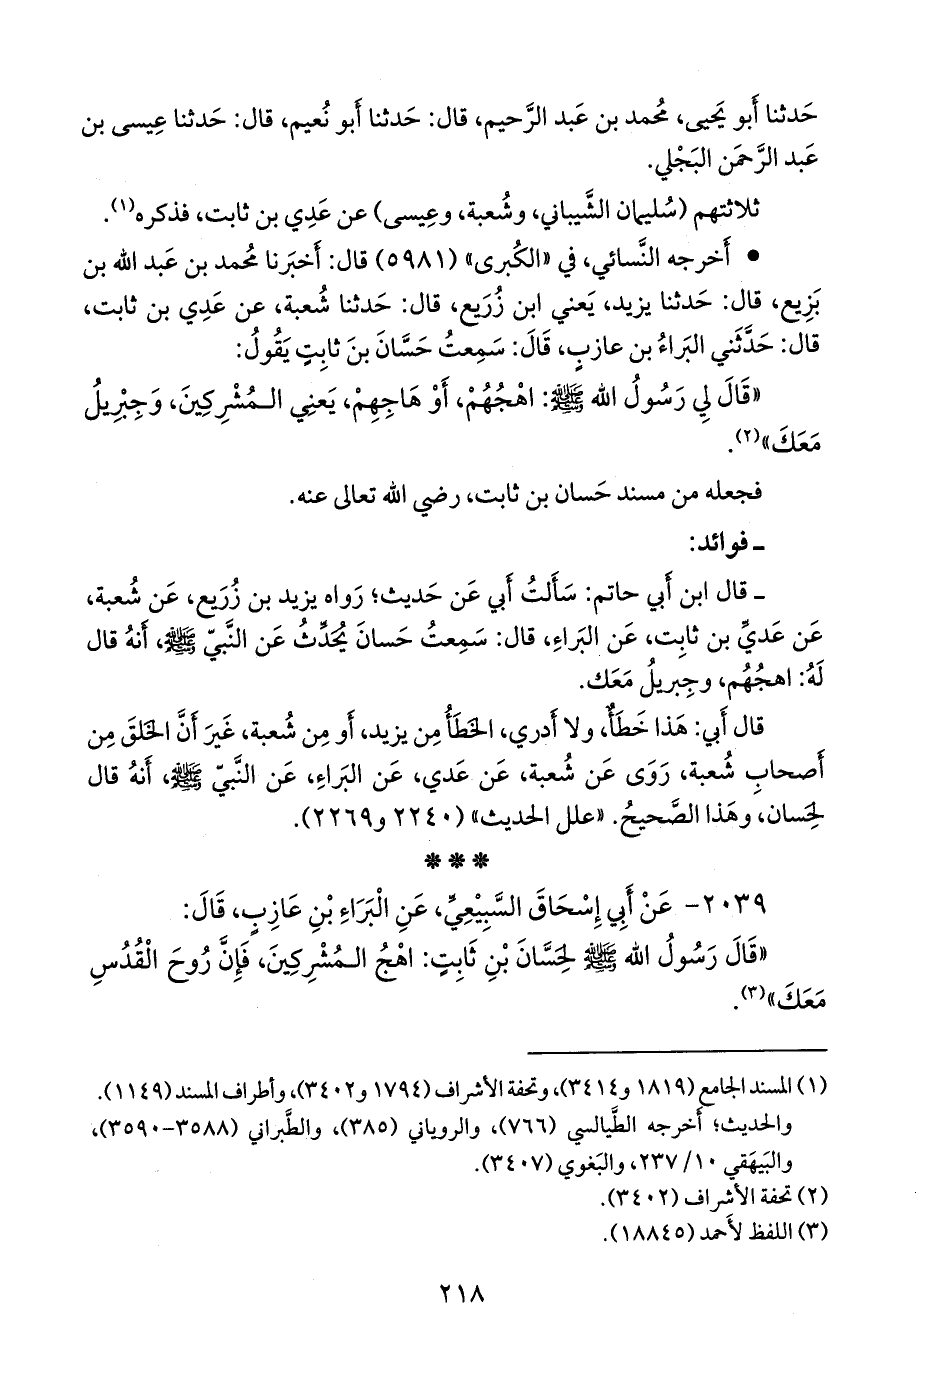 حَدثنا أَبو يَحيى، مُحمد بن عَبد الرَّحيم، قال: حَدثنا أَبو نُعيم، قال: حَدثنا عِيسى بن
عَبد الرَّحمَن البَجْلي.
ثلاثتهم (سُليمان الشَّيباني، وشُعبة، وعِيسى) عن عَدِي بن ثابت، فذكره(١).
• أَخرجه النَّسائي، في «الكُبرى» (٥٩٨١) قال: أَخبَرنا مُحمد بن عَبد الله بن
بَزِيع، قال: حَدثنا يزيد، يَعني ابن زُرَيع، قال: حَدثنا شُعبة، عن عَدِي بن ثابت،
قال: حَدَّثَني البَراءُ بن عازبٍ، قَالَ: سَمِعتُ حَسَّانَ بنَ ثابِتٍ يَقُولُ:
«قَالَ لِي رَسُولُ الله ﷺ: اهْجُهُمْ، أَوْ هَاجِهِمْ، يَعنِي الـمُشْرِكِينَ، وَجِبْرِيلُ
مَعَكَ»(٢).
فجعله من مسند حَسان بن ثابت، رضي الله تعالى عنه.
ـ فوائد:
ـ قال ابن أَبي حاتم: سَأَلتُ أَبي عَن حَديث؛ رَواه يزيد بن زُرَيع، عَن شُعبة،
عَن عَديِّ بن ثابِت، عَن البَراءِ، قال: سَمِعتُ حَسانَ يُحَدِّثُ عَن النَّبيِّ ﷺ، أَنهُ قال
لَهُ: اهجُهُم، وجِبريلُ مَعَك.
قال أَبي: هَذا خَطَأٌ، ولا أَدري، الخَطَأُ مِن يزيد، أَو مِن شُعبة، غَيرَ أَنَّ الخَلقَ مِن
أَصحابِ شُعبة، رَوَى عَن شُعبة، عَن عَدي، عَن البَراءِ، عَن النَّبيِّ ﷺ، أَنهُ قال
لحَسان، وهَذا الصَّحيحُ. «علل الحديث» (٢٢٤٠ و٢٢٦٩).
***
٢٠٣٩- عَنْ أَبِي إِسْحَاقَ السَّبِيْعِيِّ، عَنِ الْبَرَاءِ بْنِ عَازِبٍ، قَالَ:
«قَالَ رَسُولُ الله ﷺ لِحَسَّانَ بْنِ ثَابِتٍ: اهْجُ الـمُشْرِكِينَ، فَإِنَّ رُوحَ الْقُدُسِ
مَعَكَ»(٣).
(١) المسند الجامع (١٨١٩ و٣٤١٤)، وتحفة الأشراف (١٧٩٤ و٣٤٠٢)، وأطراف المسند (١١٤٩).
والحديث؛ أَخرجه الطَّيالسي (٧٦٦)، والروياني (٣٨٥)، والطَّبراني (٣٥٨٨-٣٥٩٠)،
والبَيهَقي ١٠/ ٢٣٧، والبَغوي (٣٤٠٧).
(٢) تحفة الأشراف (٣٤٠٢).
(٣) اللفظ لأَحمد (١٨٨٤٥).
٢١٨